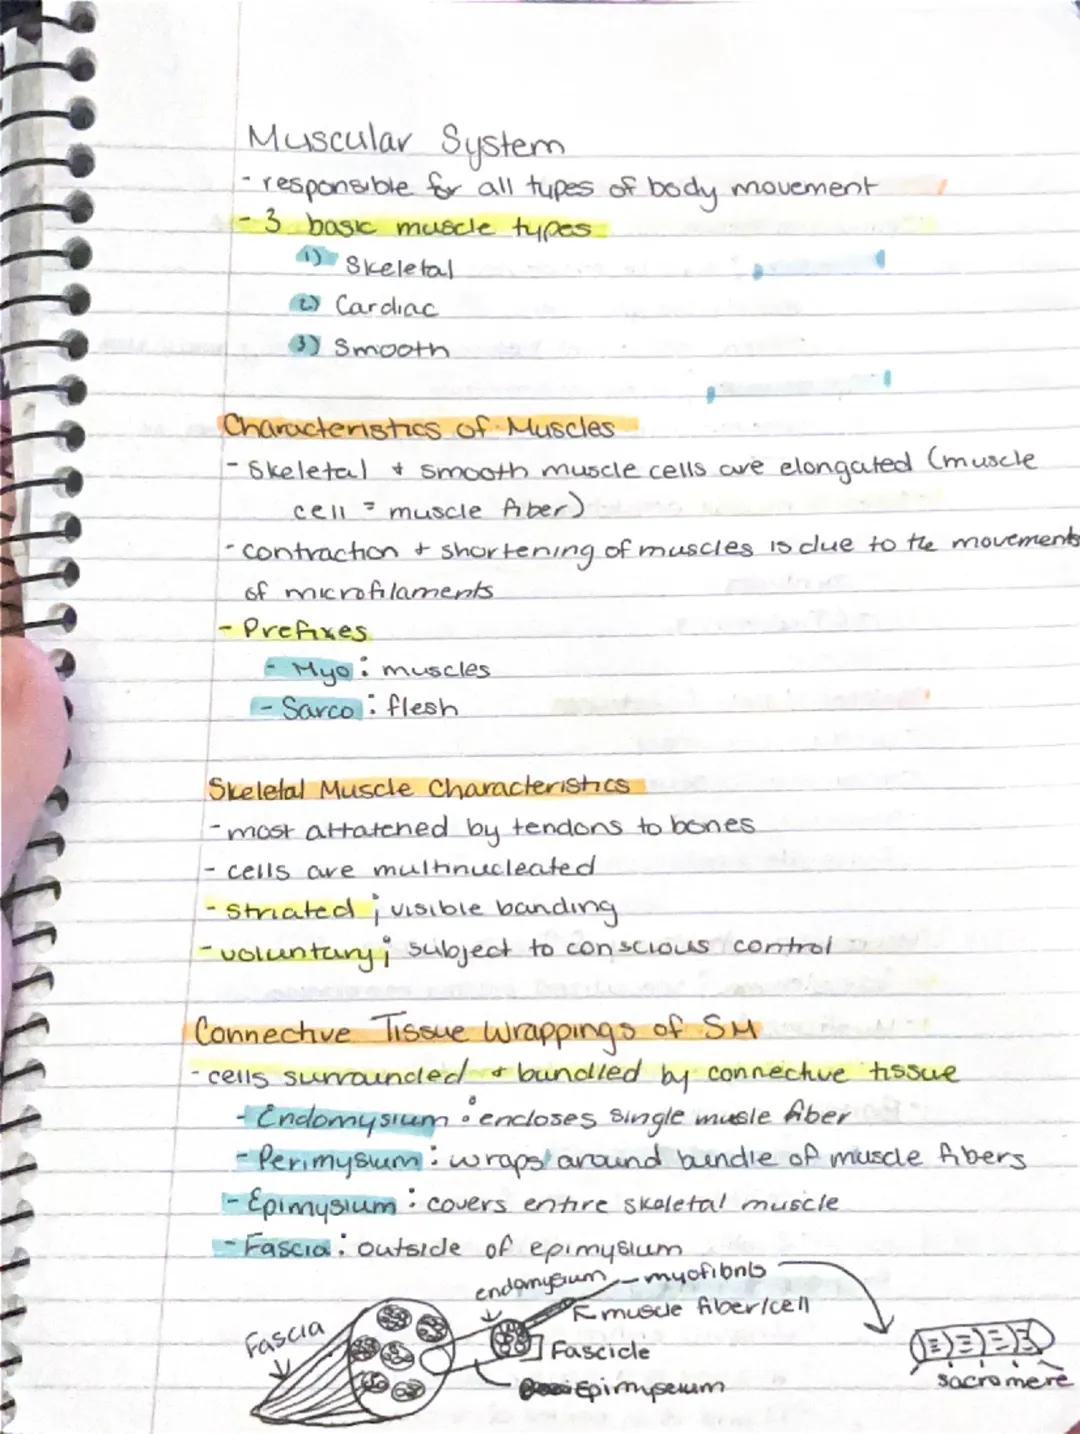 Muscular System
- responsible for all types of body movement
- 3 basic muscle types
1) Skeletal
2) Cardiac
3) Smooth
Characteristics of Muscles
- Skeletal + smooth muscle cells are elongated (muscle
cell = muscle fiber)
- contraction + shortening of muscles is due to the movements
of microfilaments
- Prefixes
- Myo: muscles
- Sarco: flesh
Skeletal Muscle Characteristics
- most attatched by tendons to bones
- cells are multinucleated
- striated; visible banding
- voluntary; subject to conscious control
Connective Tissue Wrappings of SM
- cells surrounded + bundled by connective tissue
- Endomysium: encloses single musle fiber
- Perimysium: wraps around bundle of muscle fibers
- Epimysium: covers entire skeletal muscle
- Fascia: outside of epimysium
endomysium
myofibrils
muscle fiber/cell
Fascia
Fascicle
Epimyseum
sacromere